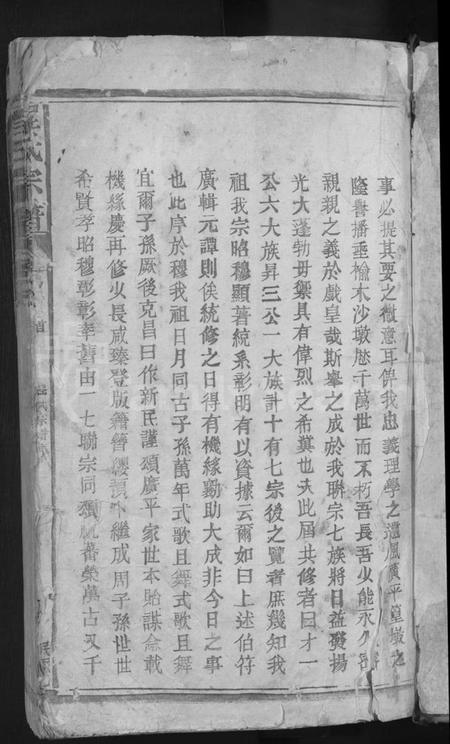 事必提其要之微意耳俾我忠義理學之遺風廣平墓墩之
隆譽播垂榆木沙墩歷千萬世而不朽吾長吾少能永久
親親之義於戲皇哉斯舉之成於我聯宗七族將日益發揚
光大蓬勃毋禦具有偉烈之希冀也夫此屆共修者曰才一
公六大族昇三公一大族計十有七宗後之覽者庶幾知我
祖我宗昭穆顯著統系彰明有以資據云爾如曰上述伯符
廣輯元譚則俟統修之日得有機緣勷助大成非今日之事
也此序於穆我祖日月同古子孫萬年式歌且舞式歌且舞
宜爾子孫厥後克昌曰作新民謹頌廣平家世本貽謀僉載
機緣慶再修少長咸臻登版籍簪纓
繼成周子孫世世
希賢孝昭穆彰彰率舊由一七聯宗同
蕃榮萬古又千
宗譜
首